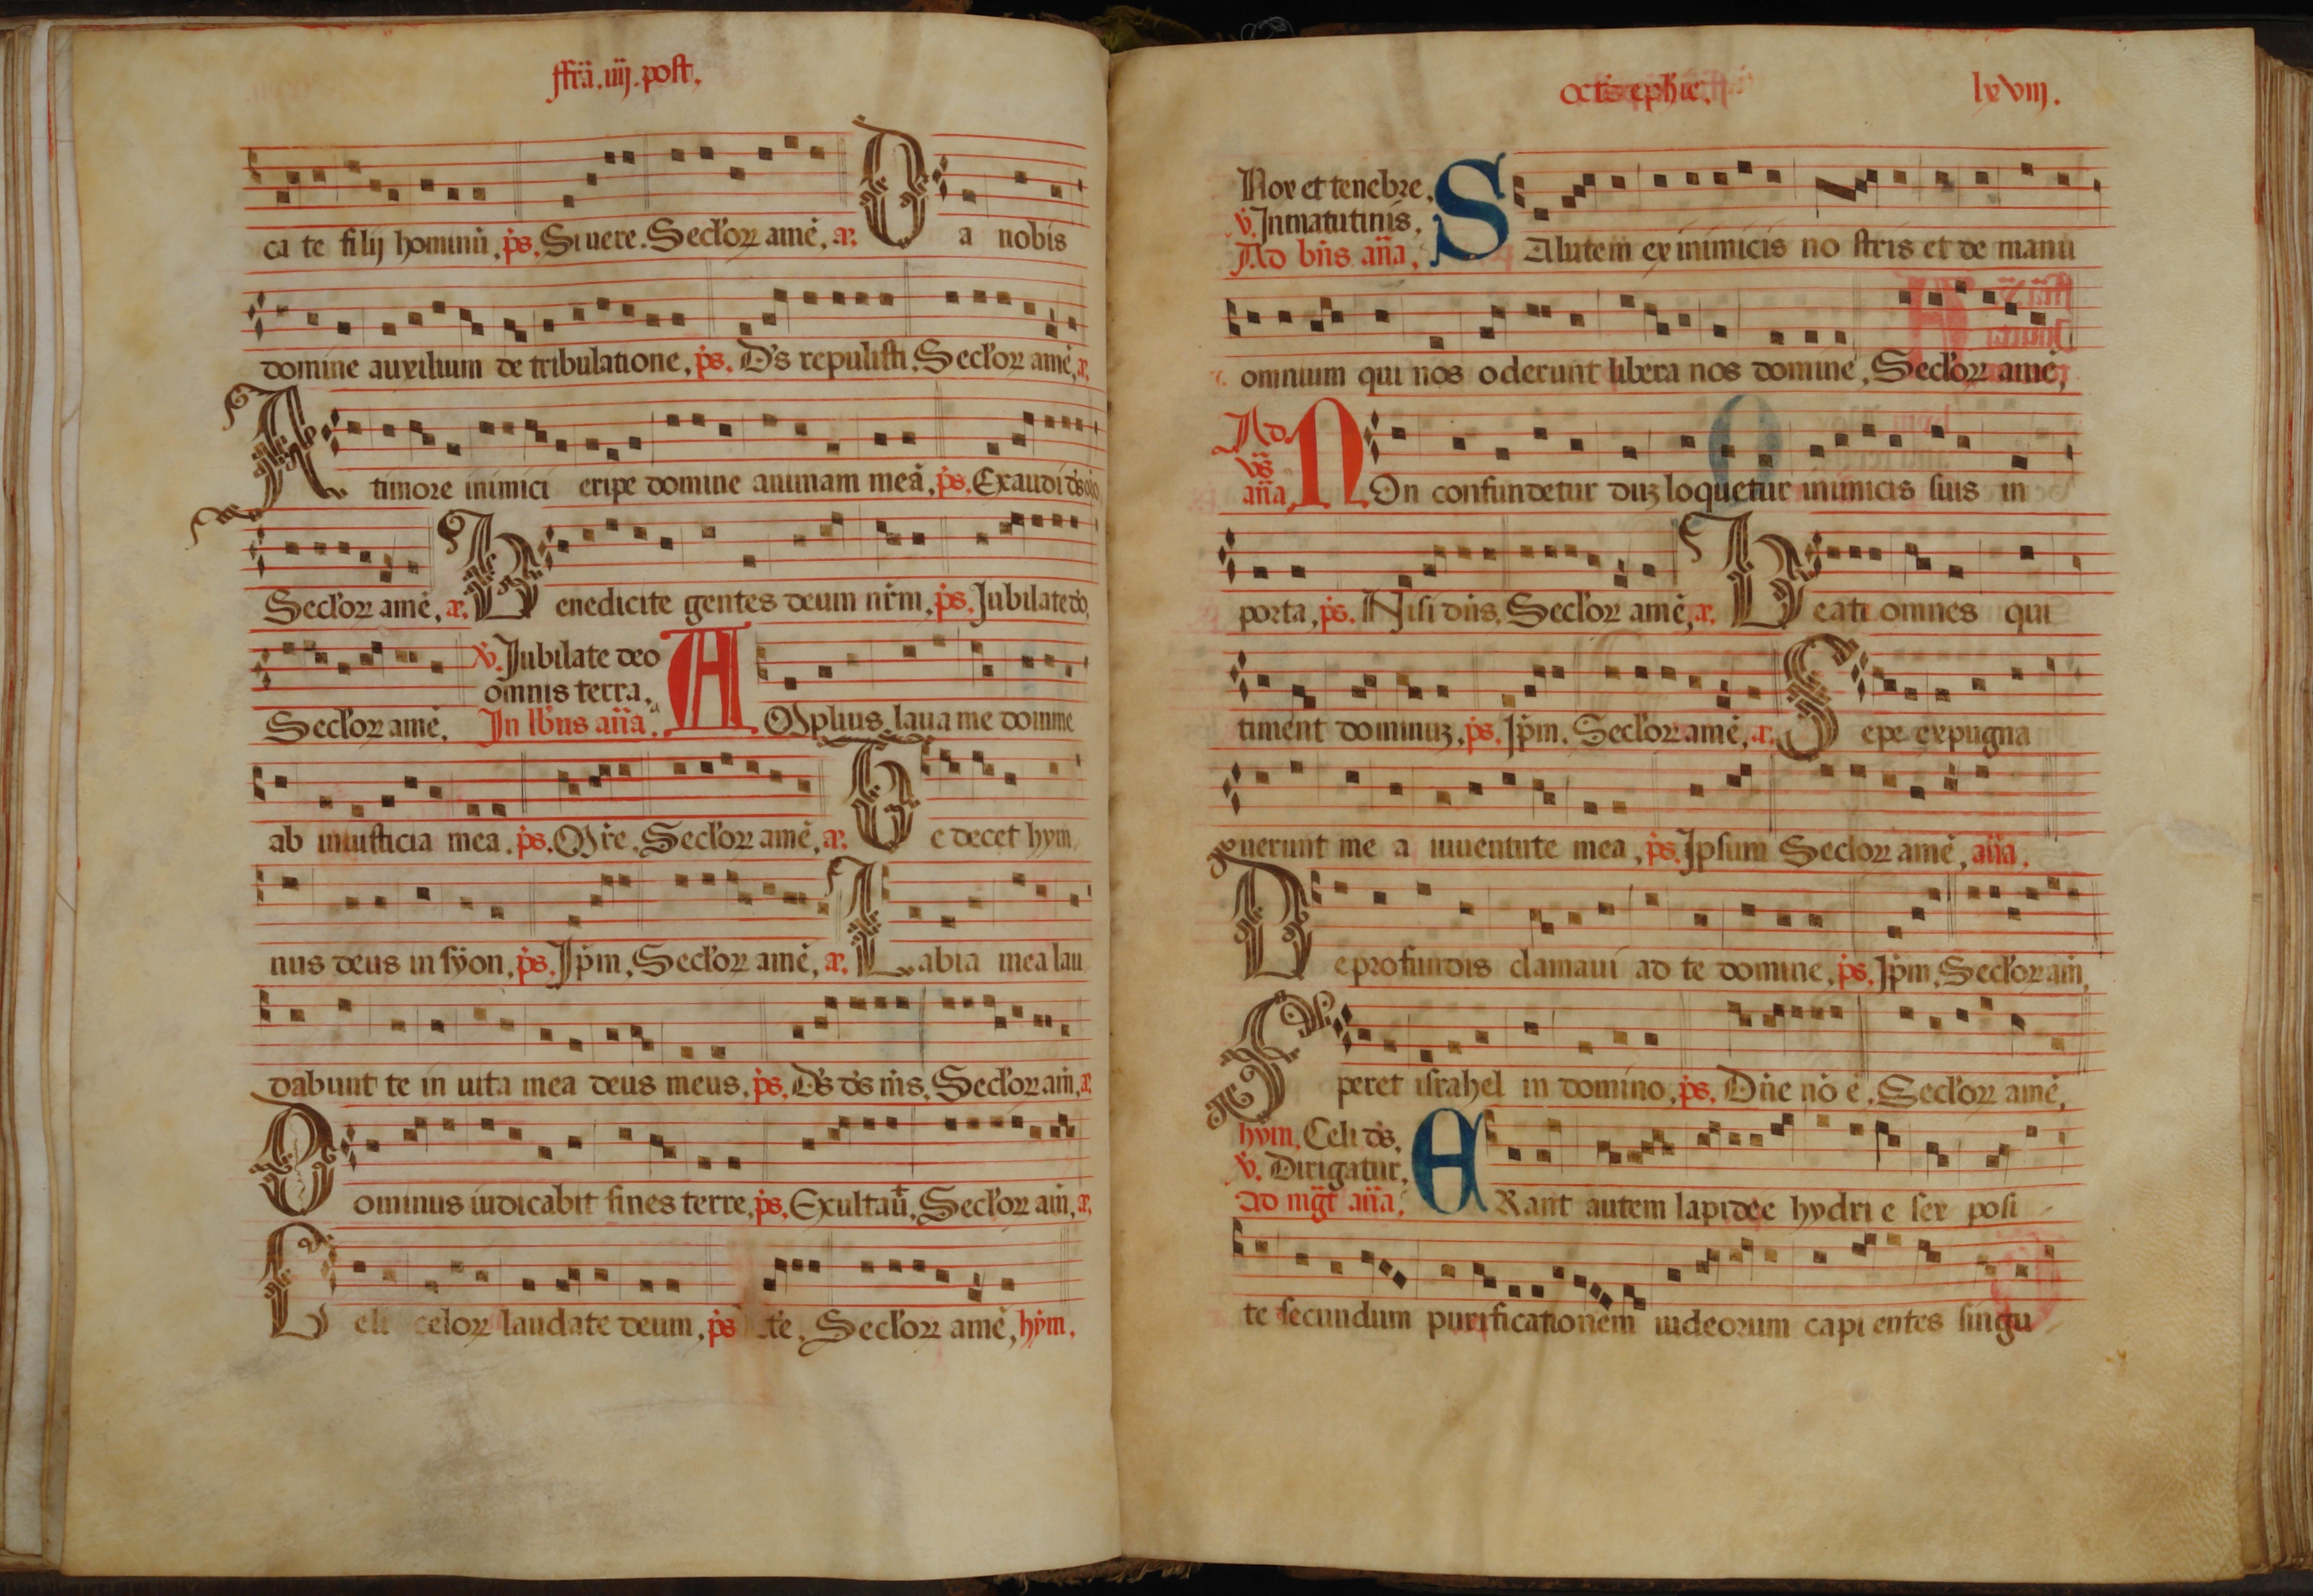 ffía. iiij. post.
ca te filij hominū. ps. Si uere. Seclor̄ amē, a.
D a nobis
domine auxilium de tribulatione, ps. Ds repulisti. Seclor̄ amē, a.
A timore inimici eripe domine animam meā, ps. Exaudi ds
Seclor̄ amē, a. Benedicite gentes deum nr̄m, ps. Jubilate do,
V. Jubilate deo
omnis terra.
Seclor̄ amē. In lb̄us an̄a. AMplius laua me domine
ab iniusticia mea. ps. Mr̄e. Seclor̄ amē, a. Te decet hym
nus deus in syon, ps. Jp̄m, Seclor̄ amē, a. Labia mea lau
dabunt te in uita mea deus meus. ps. Ds ds ms. Seclor̄ am̄, a.
Dominus iudicabit fines terre, ps. Exultau̅, Seclor̄ am̄, a.
Celi celor̄ laudate deum, ps te, Seclor̄ amē, hym.
octs ephie. lxviij.
Nox et tenebre,
V. In matutinis,
Ad bn̄s an̄a, SAlutem ex inimicis no stris et de manu
omnium qui nos oderunt libera nos domine, Seclor̄ amē,
Ad
vs̄
an̄a NOn confundetur duz loquetur inimicis suis in
porta, ps. Nisi dn̄s, Seclor̄ amē, a. Beati omnes qui
timent dominuz, ps. Jp̄m. Seclor̄ amē, a. Sepe expugna
uerunt me a iuuentute mea, ps. Jpsum Seclor̄ amē, an̄a.
De profundis clamaui ad te domine, ps. Jp̄m, Seclor̄ am̄,
Speret israhel in domino, ps. Dn̄e nō ē. Seclor̄ amē,
hym, Celi ds,
V. Dirigatur,
ad mgt an̄a, ERant autem lapidee hydri e sex posi
te secundum purificationem iudeorum capi entes singu